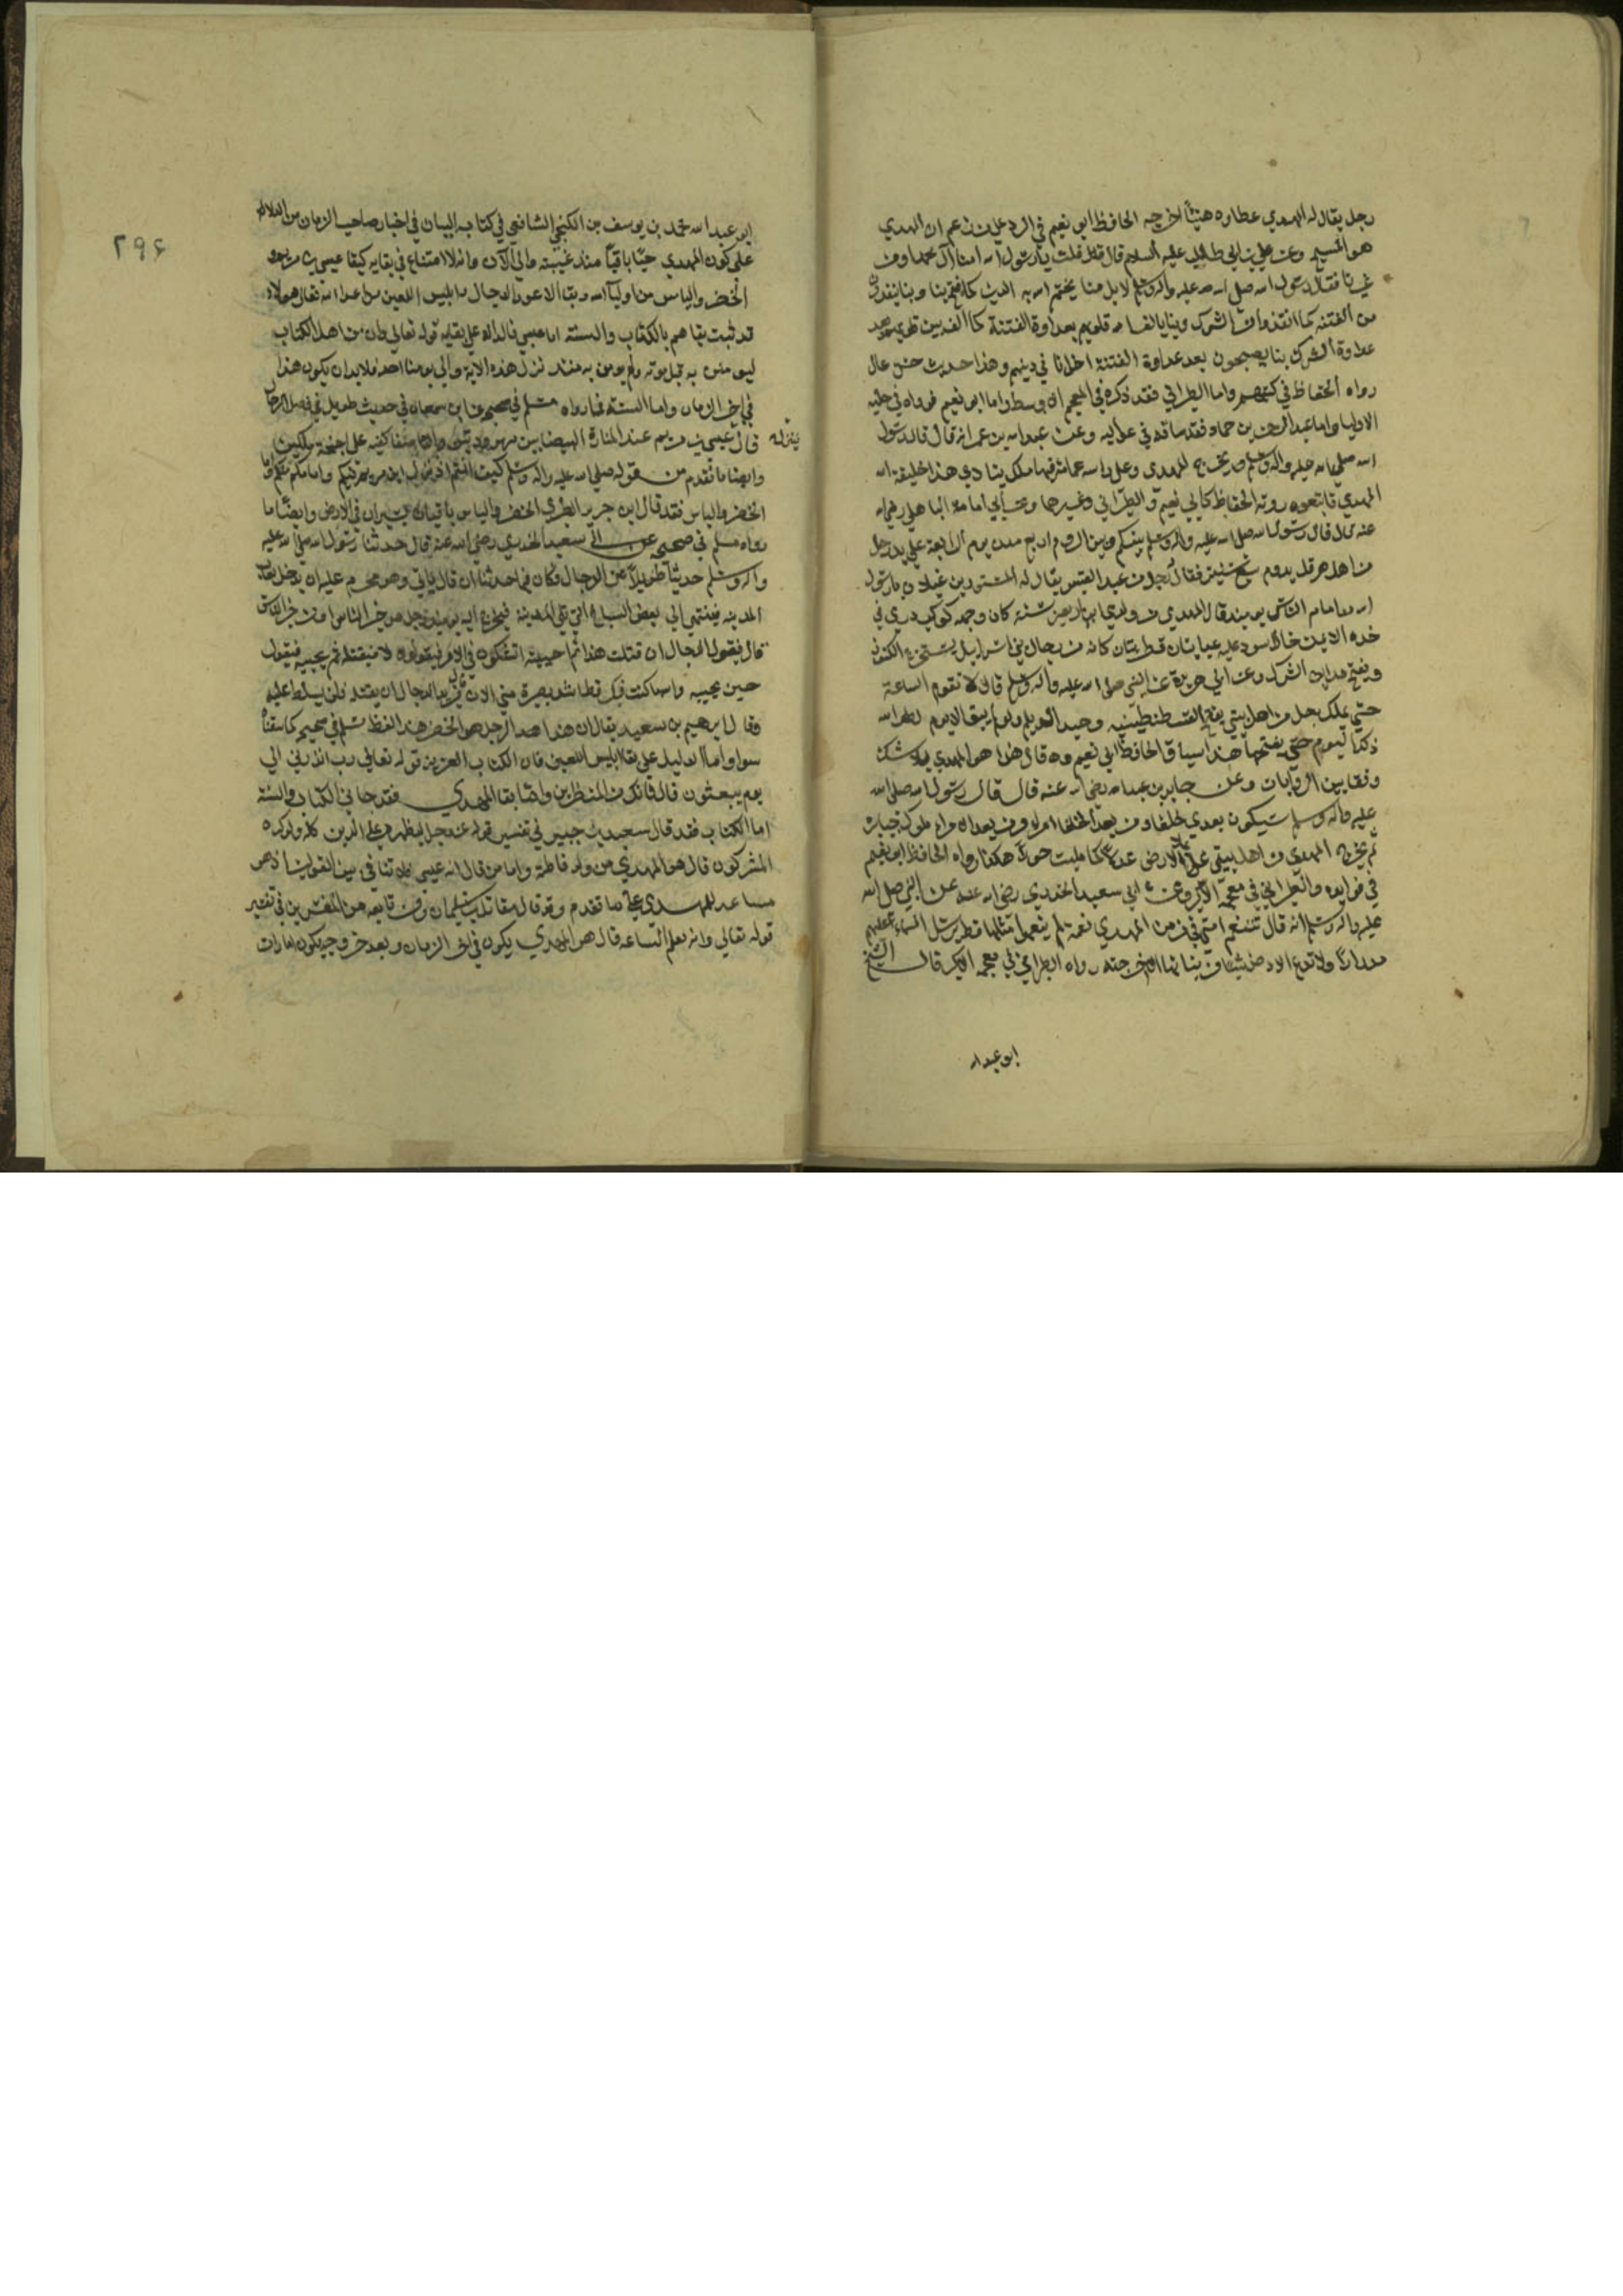 رجل يقال له المهدي عطاوه هنيئا اخرجه الحافظ ابو نعيم في الرد علي من زعم ان المهدي
هو المسيح وعن علي بن ابي طالب عليه السلام قال قلت يا رسول الله امنا آل محمد او من
غيرنا فقال رسول الله صلى الله عليه واله وسلم لا بل منا يختم الله به الدين كما فتح بنا وبنا ينقذون
من الفتنه كما انقذوا من الشرك وبنا يالف الله قلوبهم بعداوة الفتنة كما الف بين قلوبهم بعد
عداوة الشرك بنا يصبحون بعد عداوة الفتنة اخوانا في دينهم وهذا حديث حسن عال
رواه الحفاظ في كتبهم واما الطبراني فقد ذكره في المعجم الاوسط واما ابو نعيم فرواه في حلية
الاوليا واما عبد الرحمن بن حماد فقد ساقه في عواليه وعن عبد الله بن عمر انه قال قال رسول
الله صلى الله عليه واله وسلم يخرج المهدي وعلى راسه غمامة فيها ملك ينادي هذا خليفة الله
المهدي فاتبعوه روته الحفاظ كابي نعيم والطبراني وغيرهما وعن ابي امامة الباهلي رضي الله
عنه قال قال رسول الله صلى الله عليه واله وسلم بينكم وبين الروم اربع هدن يوم الرابعة علي يد رجل
من اهل هرقل يدوم سبع سنين فقال رجل من عبد القيس يقال له المستورد بن غيلان يا رسول
الله من امام الناس يوميذ قال المهدي من ولدي ابن اربعين سنة كان وجهه كوكب دري في
خده الايمن خال اسود عليه عبايتان قطوانيتان كانه من رجال بني اسرائيل يستخرج الكنوز
ويفتح مداين الشرك وعن ابي هريرة عن النبي صلى الله عليه واله وسلم قال لا تقوم الساعة
حتى يملك رجل من اهل بيتي يفتح القسطنطينيه وجبل الديلم ولو لم يبق الا يوم لطول الله
ذلك اليوم حتى يفتحها هذا سياق الحافظ ابي نعيم وقال هذا هو المهدي بلا شك
وفقا بين الروايات وعن جابر بن عبد الله رضي الله عنه قال قال رسول الله صلى الله
عليه واله وسلم سيكون بعدي خلفا ومن بعد الخلفا امراء ومن بعد الامراء ملوك جبابرة
ثم يخرج المهدي من اهل بيتي يملا الارض عدلا كما مليت جورا هكذا رواه الحافظ ابو نعيم
في فوايده والطبراني في معجمه الاكبر وعن ابي سعيد الخدري رضي الله عنه عن النبي صلى الله
عليه واله وسلم انه قال تتنعم امتي في زمن المهدي نعمة لم ينعموا مثلها قط يرسل السماء عليهم
مدرارا ولا تدع الارض شيئا من نباتها الا اخرجته رواه الطبراني في معجمه الاكبر قال الشيخ
ابو عبد الله
٢٩٤
ابو عبد الله محمد بن يوسف بن الكنجي الشافعي في كتابه البيان في اخبار صاحب الزمان من الدلالة
على كون المهدي حيا باقيا منذ غيبته والي الآن وانه لا امتناع في بقايه كبقا عيسي بن مريم و
الخضر والياس من اولياء الله وبقا الاعور الدجال وابليس اللعين من اعداء الله تعالى هولاء
قد ثبت بقاهم بالكتاب والسنة اما عيسي فالدليل علي بقايه قوله تعالي وان من اهل الكتاب
الا ليومنن به قبل موته ولم يومن به منذ نزل هذه الآية والي يومنا احد فلا بد ان يكون هذا
في اخر الزمان واما السنة فما رواه مسلم في صحيحه عن ابن سمعان في حديث طويل في قصة الدجال
ينزل
قال عيسي بن مريم عند المنارة البيضا بين مهرودتين واضعا كفيه على اجنحة ملكين
وايضا ما تقدم من قوله صلى الله عليه واله وسلم كيف انتم اذا نزل ابن مريم فيكم وامامكم منكم واما
الخضر والياس فقد قال ابن جرير الطبري الخضر والياس باقيان يسيران في الارض وايضا ما
رواه مسلم في صحيحه عن ابي سعيد الخدري رضي الله عنه قال حدثنا رسول الله صلى الله عليه
واله وسلم حديثا طويلا عن الدجال فكان فيما حدثنا ان قال ياتي وهو محرم عليه ان يدخل نقاب
المدينه فينتهي الي بعض السباخ التي تلي المدينة فيخرج اليه يوميذ رجل هو خير الناس او من خير الناس
قال فيقول الدجال ان قتلت هذا ثم احييته اتشكون في الامر فيقولون لا فيقتله ثم يحييه فيقول
حين يحييه والله ما كنت فيك قط اشد بصيرة مني الان قال فيريد الدجال ان يقتله فلن يسلط عليه
وقال ابرهيم بن سعيد يقال ان هذا الرجل هو الخضر هذا لفظ مسلم في صحيحه كما سقناه
سوا واما الدليل على بقا ابليس اللعين فان الكتاب العزيز قوله تعالي رب انظرني الي
يوم يبعثون قال فانك من المنظرين واما بقا المهدي فقد جا في الكتاب والسنة
اما الكتاب فقد قال سعيد بن جبير في تفسير قوله عز وجل ليظهره على الدين كله ولو كره
المشركون قال هو المهدي من ولد فاطمة واما من قال انه عيسي فلا تنافي بين القولين اذ هو
مساعد للمهدي على ما تقدم وقد قال مقاتل بن سليمان ومن تابعه من المفسرين في تفسير
قوله تعالي وانه لعلم للساعه قال هو المهدي يكون في اخر الزمان وبعد خروجه يكون امارات